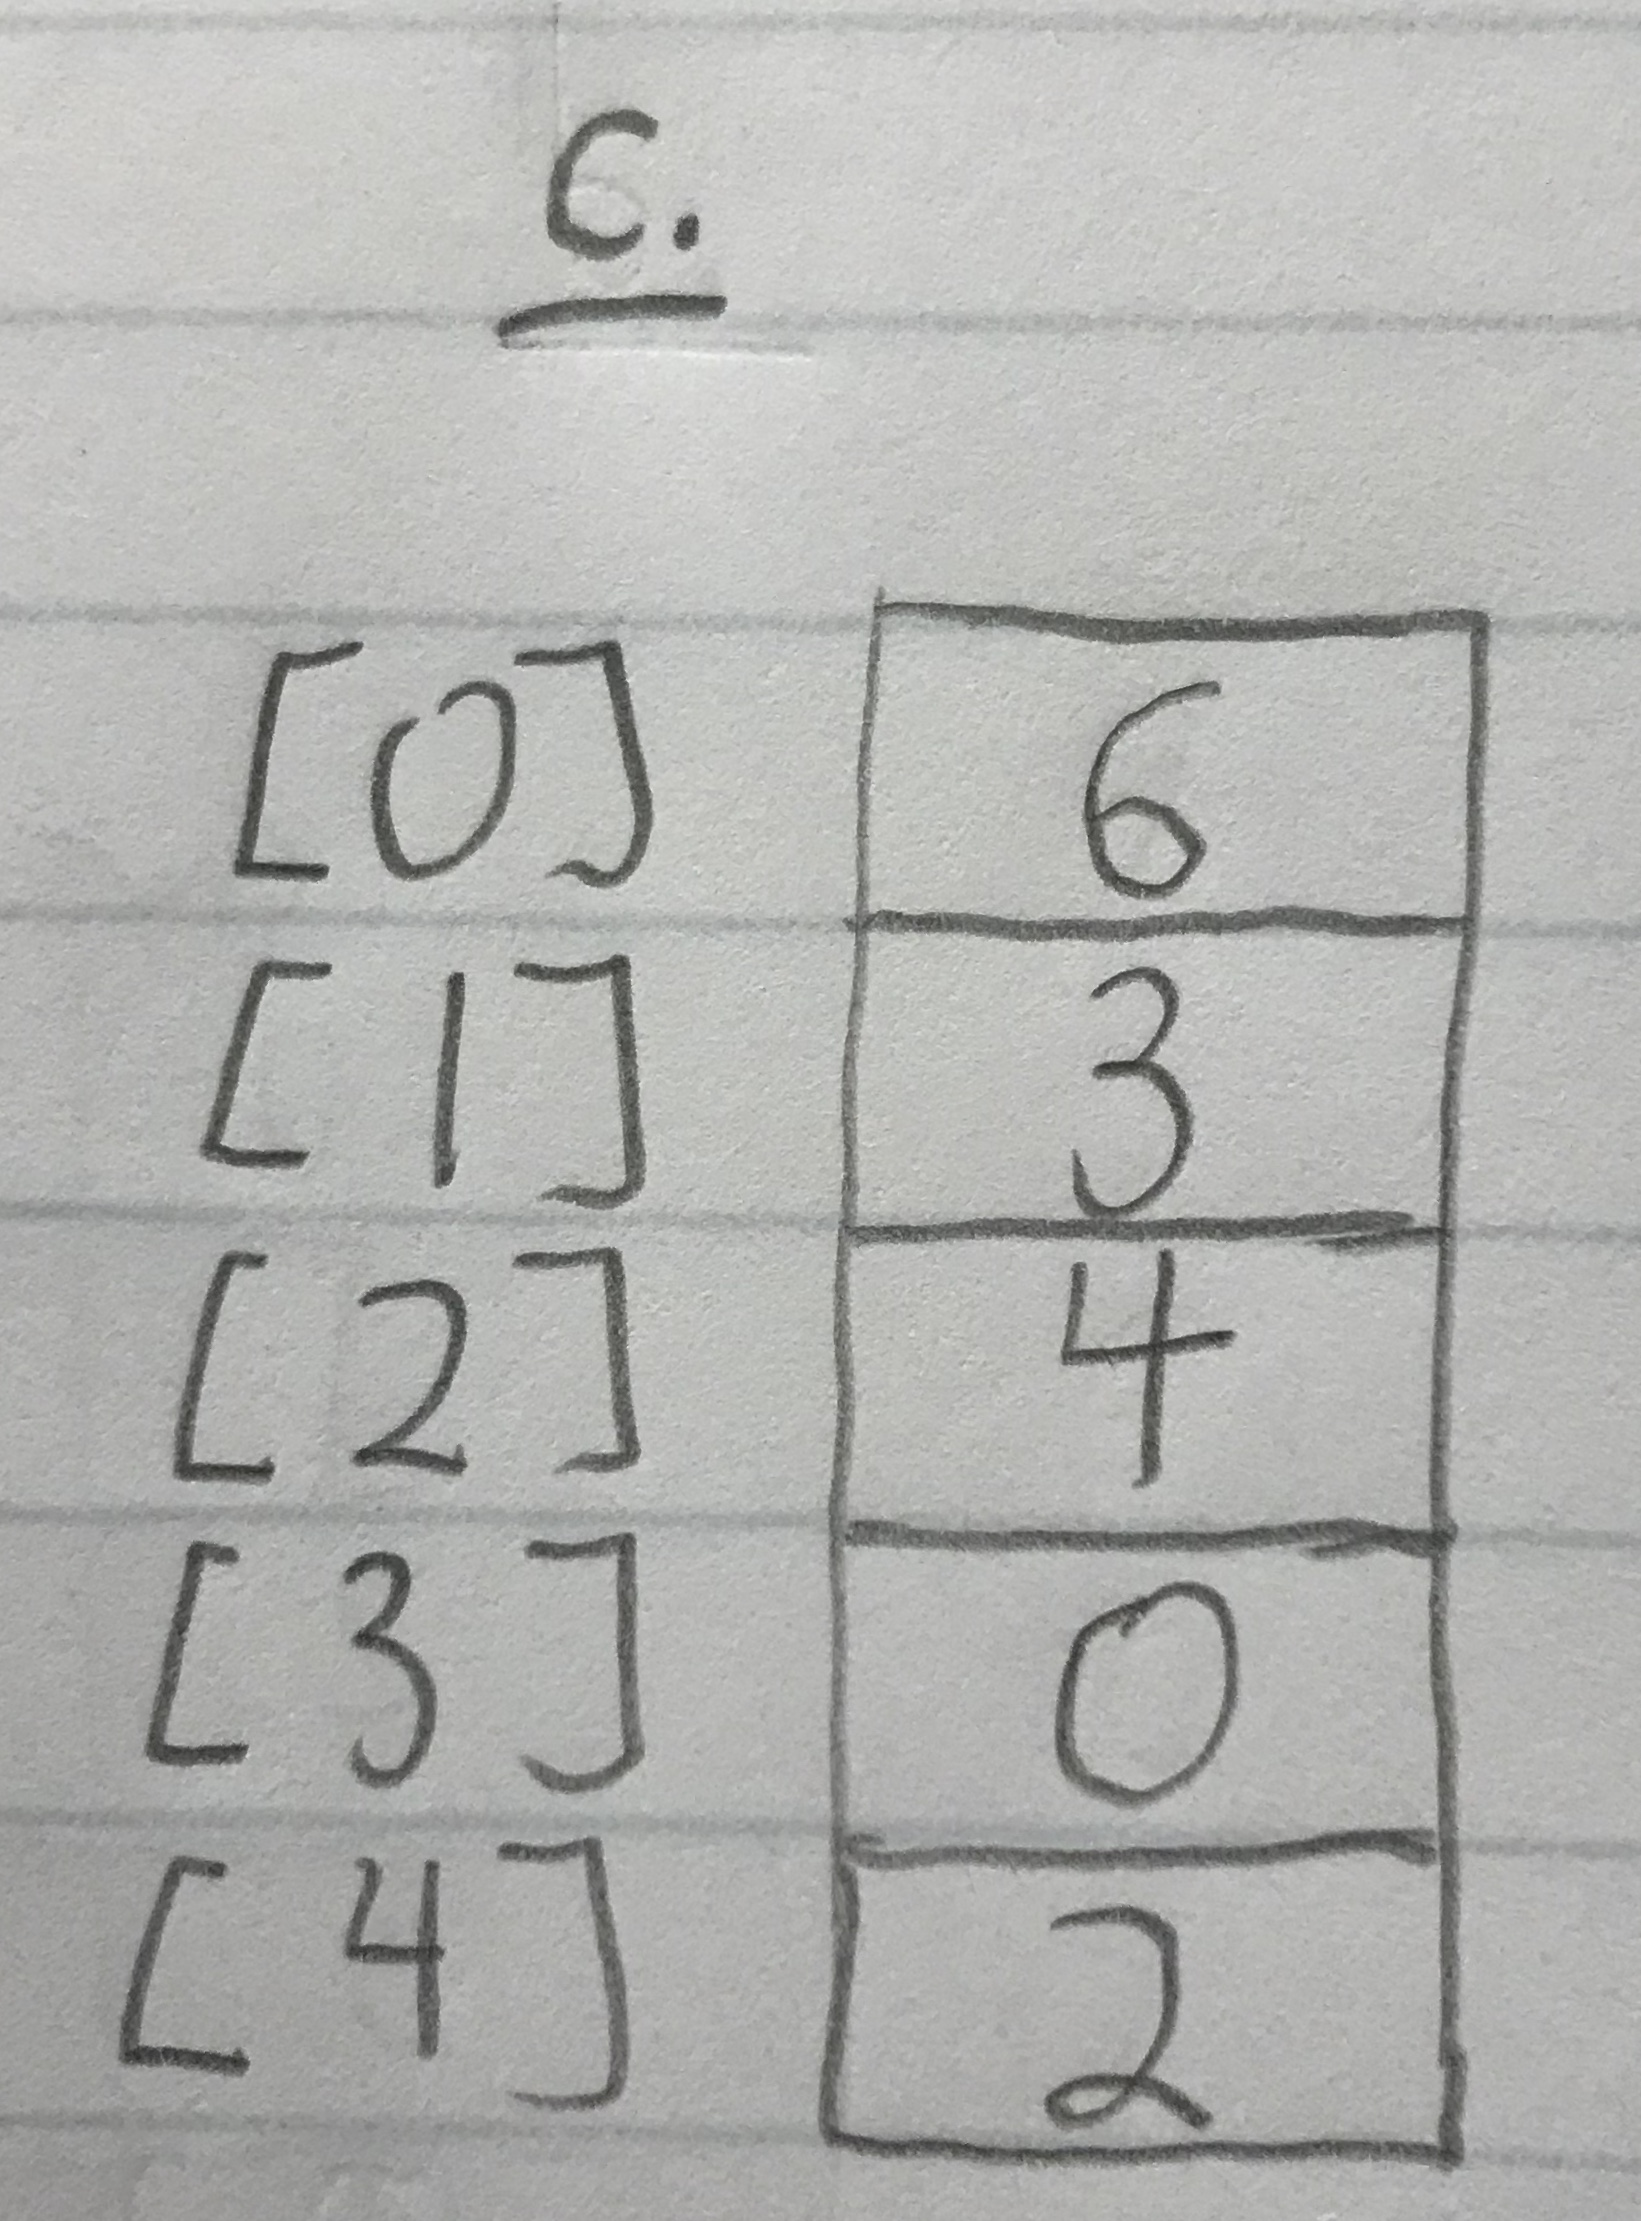 C.
[0] 6
[1] 3
[2] 4
[3] 0
[4] 2